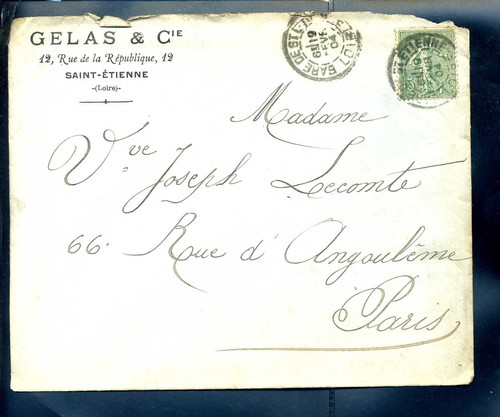 GELAS & CIE
12, Rue de la République, 12
SAINT-ÉTIENNE
-(Loire)-
GARE DE ST-ETIENNE
ST ETIENNE
Madame
Vve Joseph Lecomte
66. Rue d'Angoulême
Paris